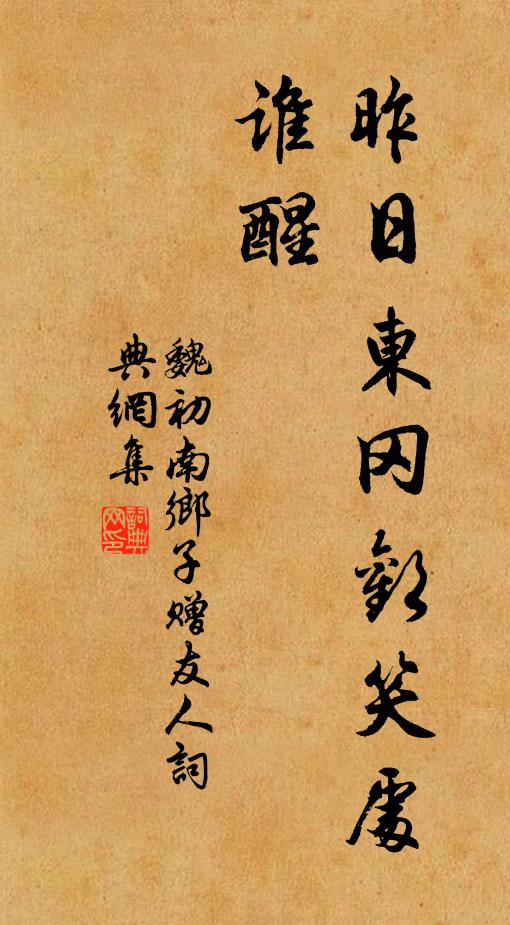 昨日東冈歡笑處
誰醒
魏初南鄉子贈友人詞
典網集
詞典
网印